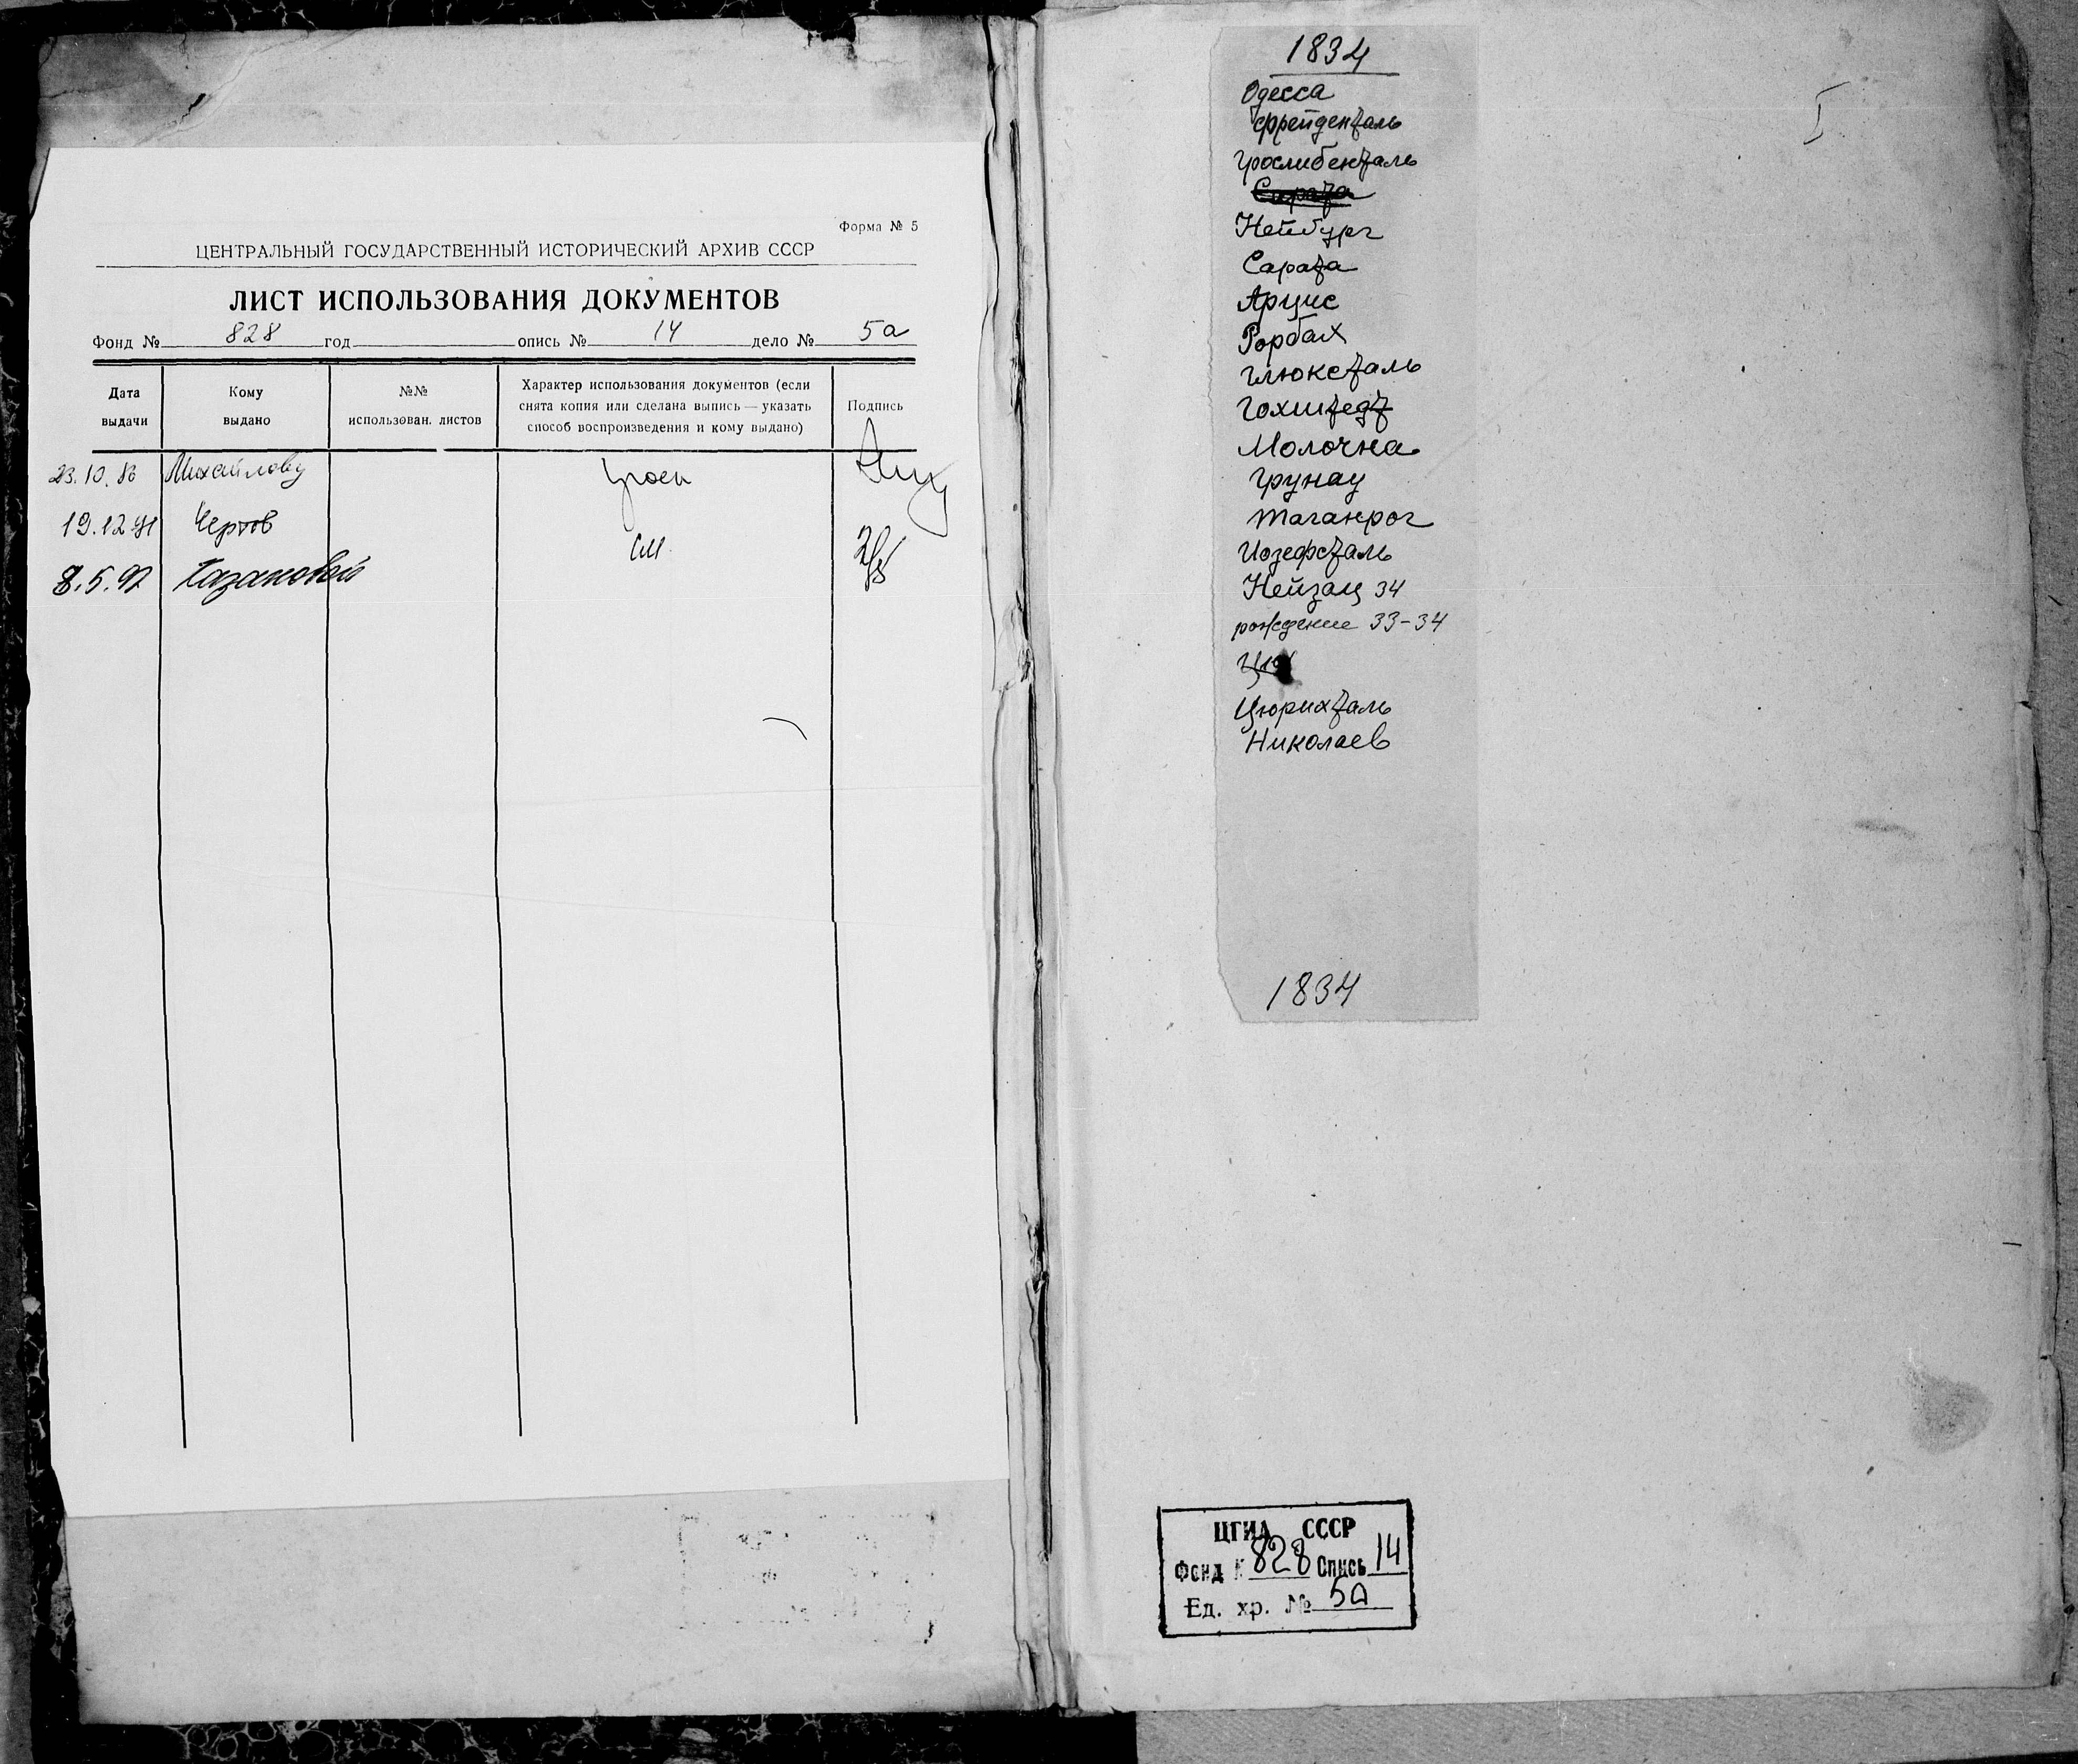 Форма № 5
ЦЕНТРАЛЬНЫЙ ГОСУДАРСТВЕННЫЙ ИСТОРИЧЕСКИЙ АРХИВ СССР
ЛИСТ ИСПОЛЬЗОВАНИЯ ДОКУМЕНТОВ
Фонд № 828 год опись № 14 дело № 5а
Дата выдачи
Кому выдано
№№ использован. листов
Характер использования документов (если
снята копия или сделана выпись — указать
способ воспроизведения и кому выдано)
Подпись
23.10.86 Михайлову
19.12.91 Чертов см
8.5.92 Казаковой
1834
Одесса
Фрейденталь
Грослибенталь
Сарата
Нейбург
Сарата
Арцис
Рорбах
Глюксталь
Гохштедт
Молочна
Грунау
Таганрог
Иозефсталь
Нейзац 34
рождение 33-34
Цю
Цюрихталь
Николаев
1834
I
ЦГИА СССР
Фонд № 828 Опись 14
Ед. хр. № 5а